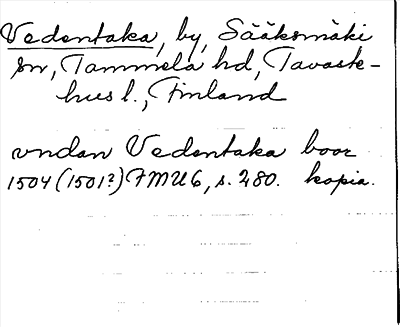 Vedentaka, by, Sääksmäki
sn, Tammela hd, Tavaste-
hus l., Finland
vndan Vedentaka boor
1504 (1501?) FMU 6, s. 280. kopia.